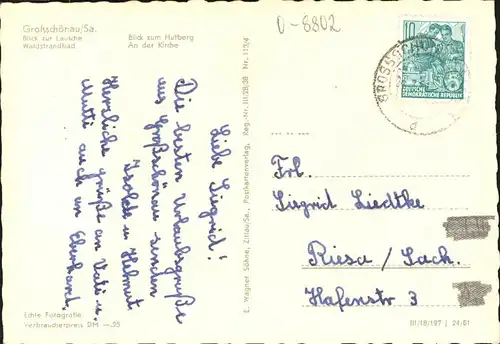 Großschönau/Sa.
Blick zur Lausche
Waldstrandbad
Blick zum Hutberg
An der Kirche
0-8802
10
DEUTSCHE
DEMOKRATISCHE REPUBLIK
GROSSSCHÖ
d
Liebe Siegrid!
Die besten Urlaubsgrüße
aus Großschönau senden
Isolde u. Helmut
Herzliche Grüße an Vati u.
Mutti auch an Eberhard.
E. Wagner Söhne, Zittau/Sa., Postkartenverlag, Reg.-Nr. III/28/38 Nr. 113/4
Frl.
Siegrid Liedtke
Riesa / Sach.
Hafenstr 3
Echte Fotografie
Verbraucherpreis DM —.25
III/18/197 | 24/61